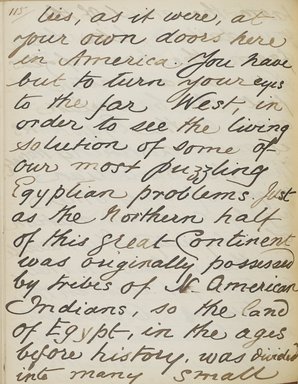 115
lies, as it were, at
your own doors here
in America. You have
but to turn your eyes
to the far West, in
order to see the living
solution of some of
our most puzzling
Egyptian problems. Just
as the Northern half
of this great Continent
was originally possessed
by tribes of N. American
Indians, so the land
of Egypt, in the ages
before history, was divided
into many small